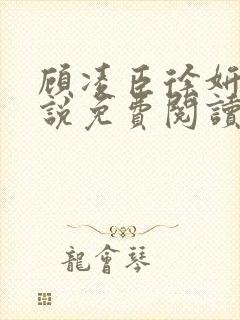 顾凌臣徐妍
說免費閱讀
龍會琴